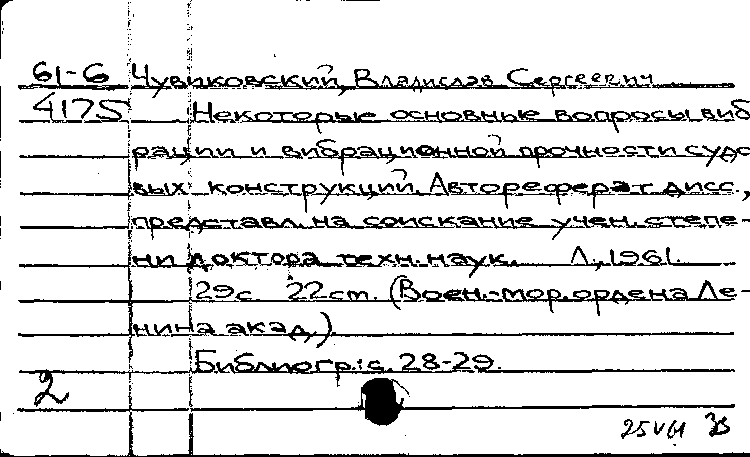 61-6 Чувиковский, Владислав Сергеевич
4175 Некоторые основные вопросы виб
рации и вибрационной прочности судо
вых конструкций. Автореферат дисс.,
представл. на соискание учен. степе-
ни доктора техн. наук. Л., 1961.
29с. 22cm. (Воен.-мор. ордена Ле-
нина акад.).
Библиогр.: с. 28-29.
2
25 VI 61